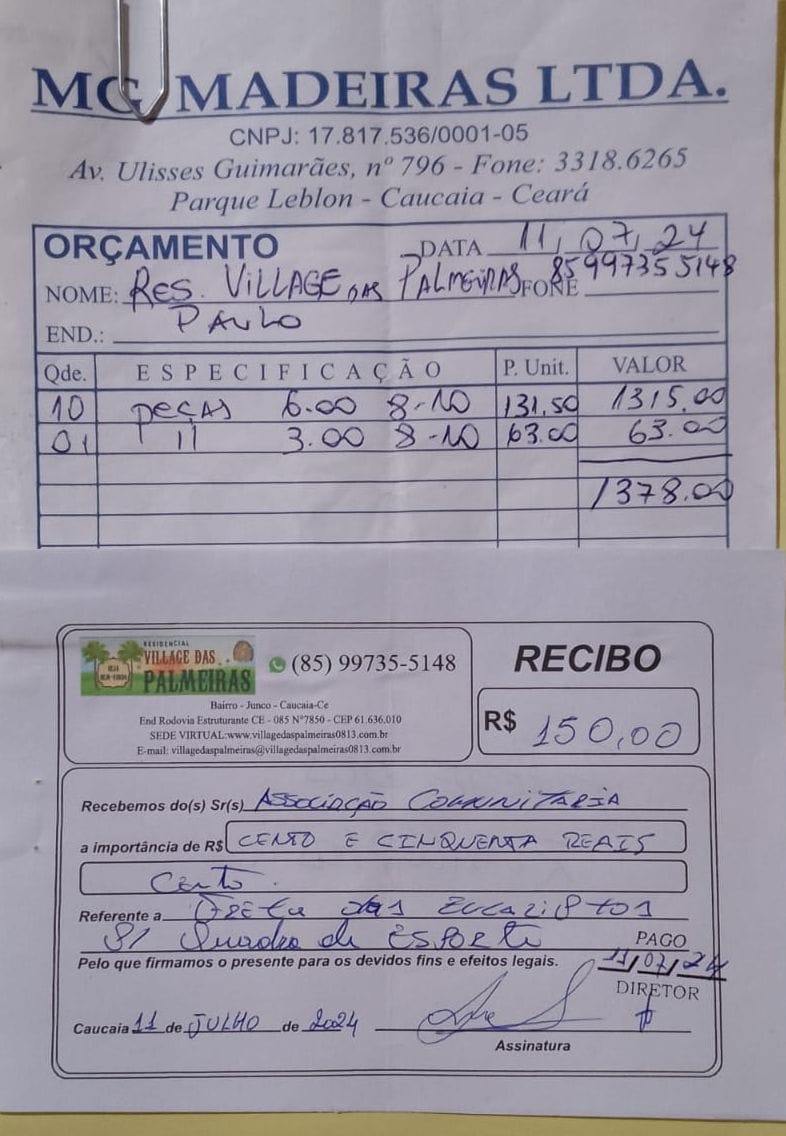 MG MADEIRAS LTDA.
CNPJ: 17.817.536/0001-05
Av. Ulisses Guimarães, nº 796 - Fone: 3318.6265
Parque Leblon - Caucaia - Ceará
ORÇAMENTO DATA 11, 07, 24
NOME: RES. VILLAGE DAS PALMEIRAS FONE 85997355148
END.: PAULO
Qde. ESPECIFICAÇÃO P. Unit. VALOR
10 PEÇAS 6.00 8-10 131,50 1315.00
01 11 3.00 8-10 63.00 63.00
1378.00
RESIDENCIAL
VILLAGE DAS
PALMEIRAS
SEJA
BEM-VINDO
(85) 99735-5148
RECIBO
Bairro - Junco - Caucaia-Ce
End Rodovia Estruturante CE - 085 Nº7850 - CEP 61.636.010
SEDE VIRTUAL:www.villagedaspalmeiras0813.com.br
E-mail: villagedaspalmeiras@villagedaspalmeiras0813.com.br
R$ 150,00
Recebemos do(s) Sr(s) ASSOCIAÇÃO COMUNITARIA
a importância de R$ CENTO E CINQUENTA REAIS
Referente a
Quadra de ESPORTE PAGO
Pelo que firmamos o presente para os devidos fins e efeitos legais. 11/07/24
DIRETOR
Caucaia 11 de JULHO de 2024
Assinatura